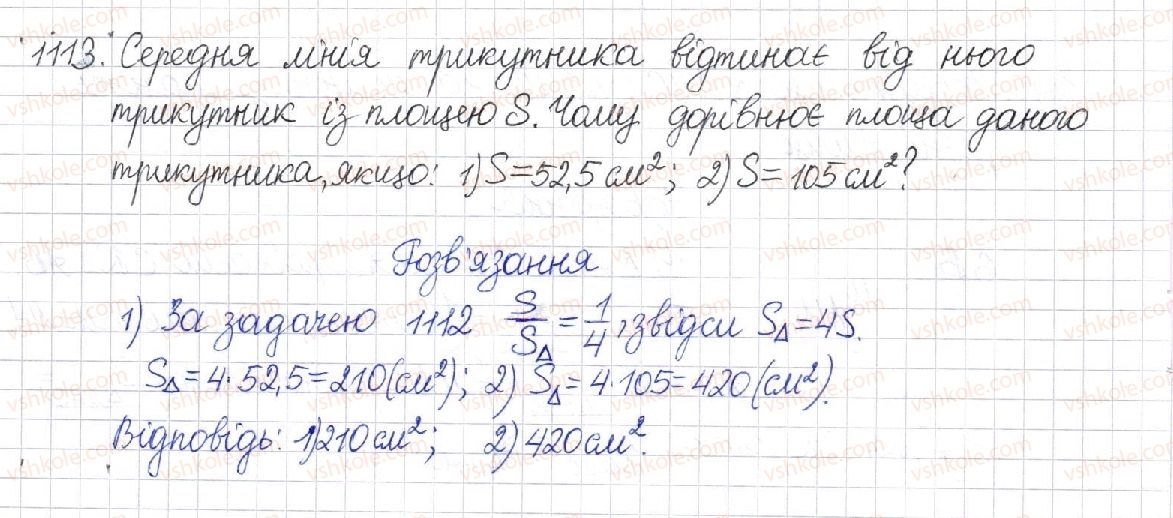 1113. Середня лінія трикутника відтинає від нього
трикутник із площею S. Чому дорівнює площа даного
трикутника, якщо: 1) S=52,5 см²; 2) S= 105 см²?
Розв'язання
1) За задачею 1112 S/S△ = 1/4, звідси S△=4S.
S△=4·52,5=210(см²); 2) S△=4·105=420 (см²).
Відповідь: 1)210 см²; 2) 420 см².